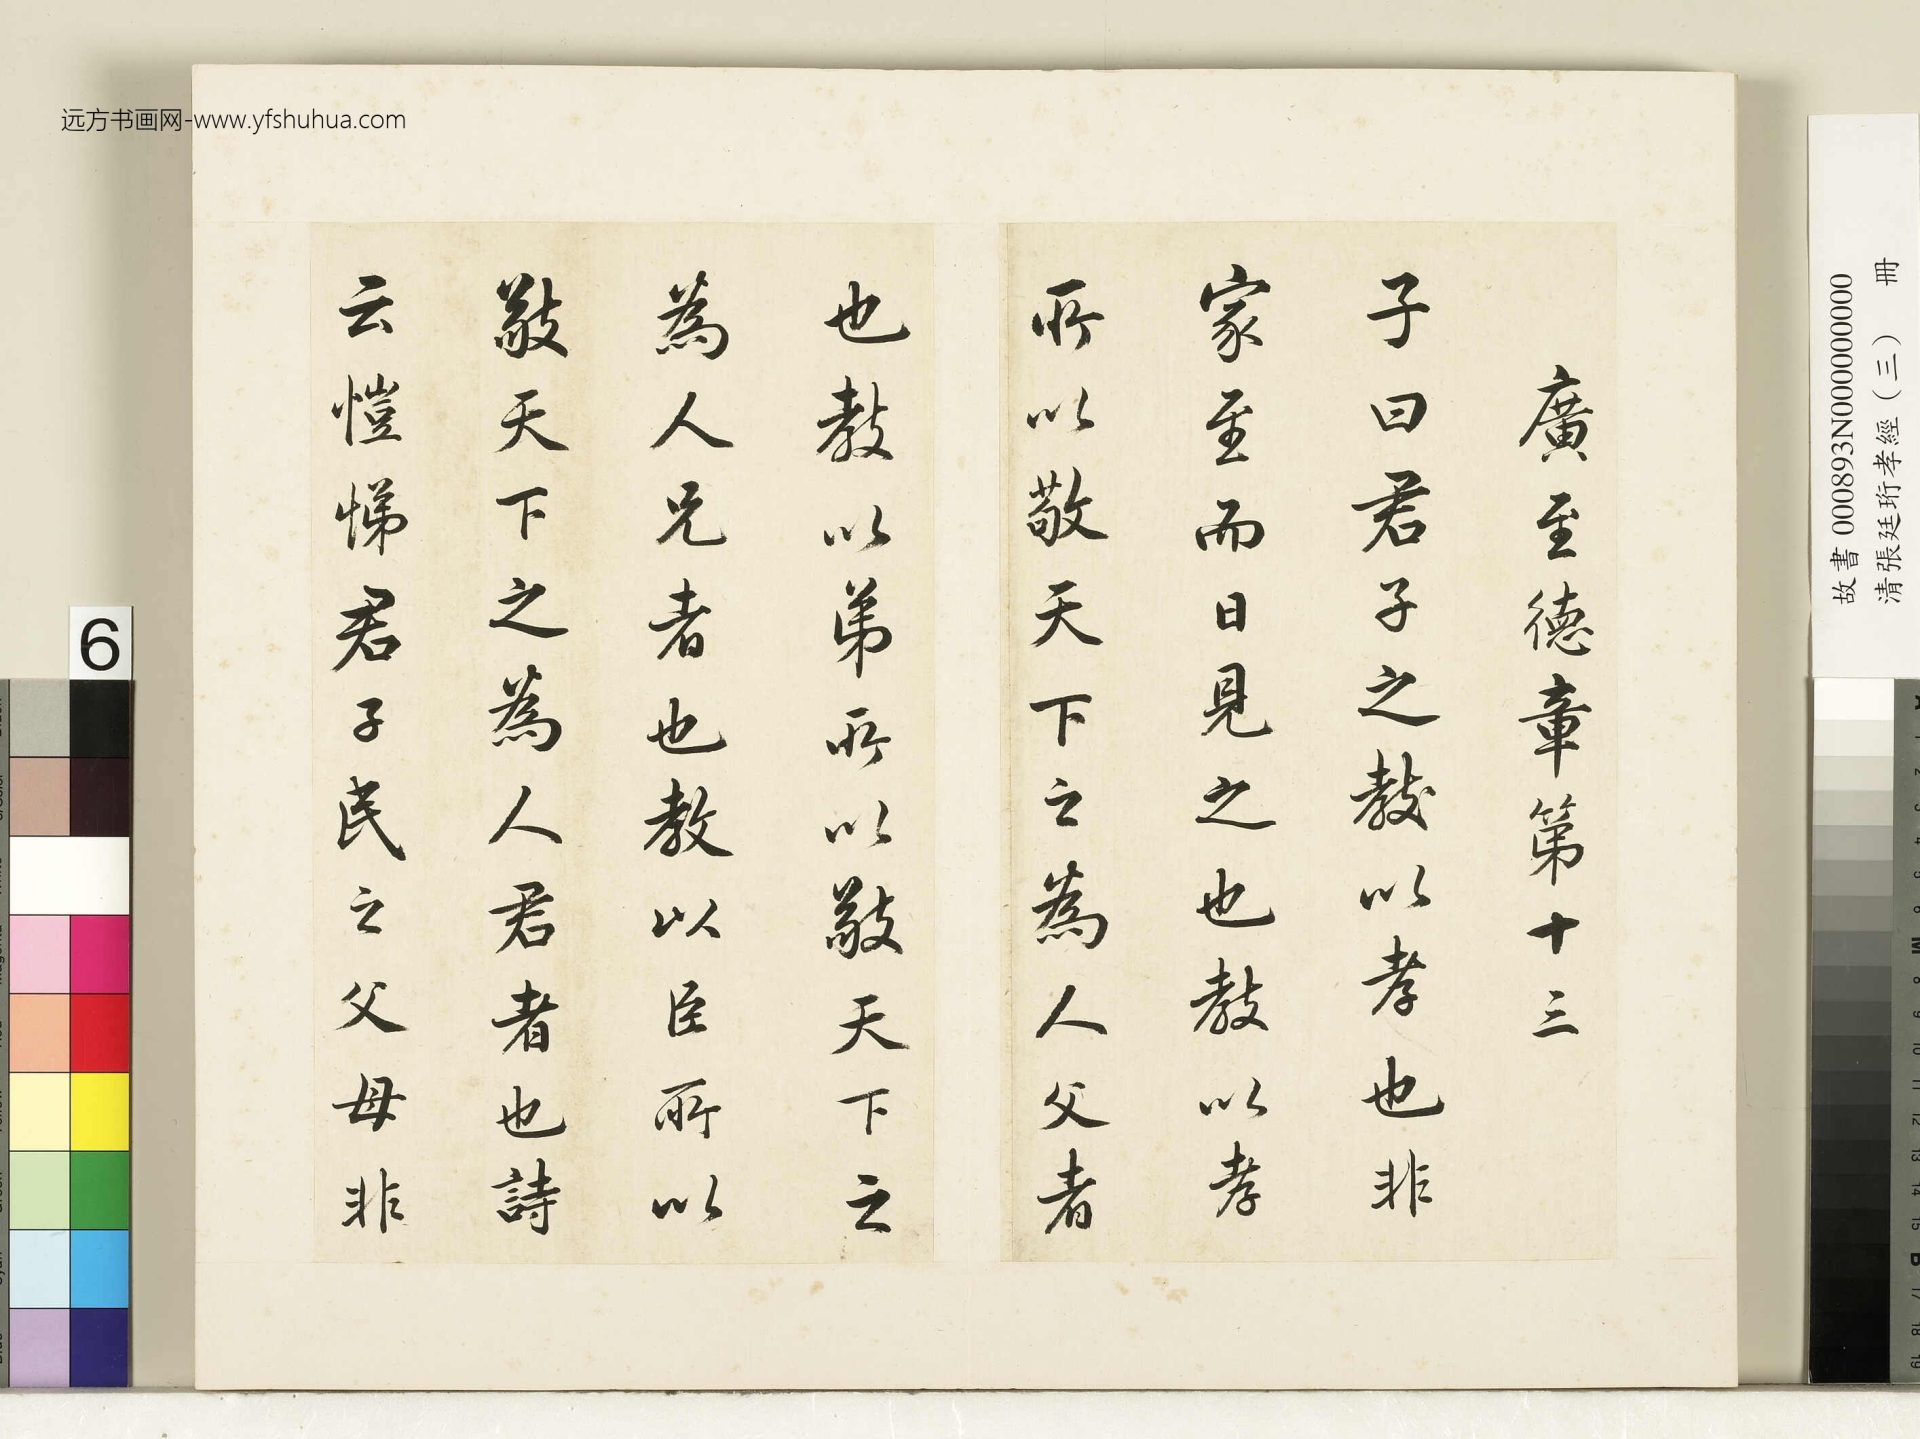 廣至德章第十三
子曰君子之教以孝也非
家至而日見之也教以孝
所以敬天下之為人父者
也教以弟所以敬天下之
為人兄者也教以臣所以
敬天下之為人君者也詩
云愷悌君子民之父母非
远方书画网-www.yfshuhua.com
故書 000893N000000000
清張廷珩孝經(三) 冊
6